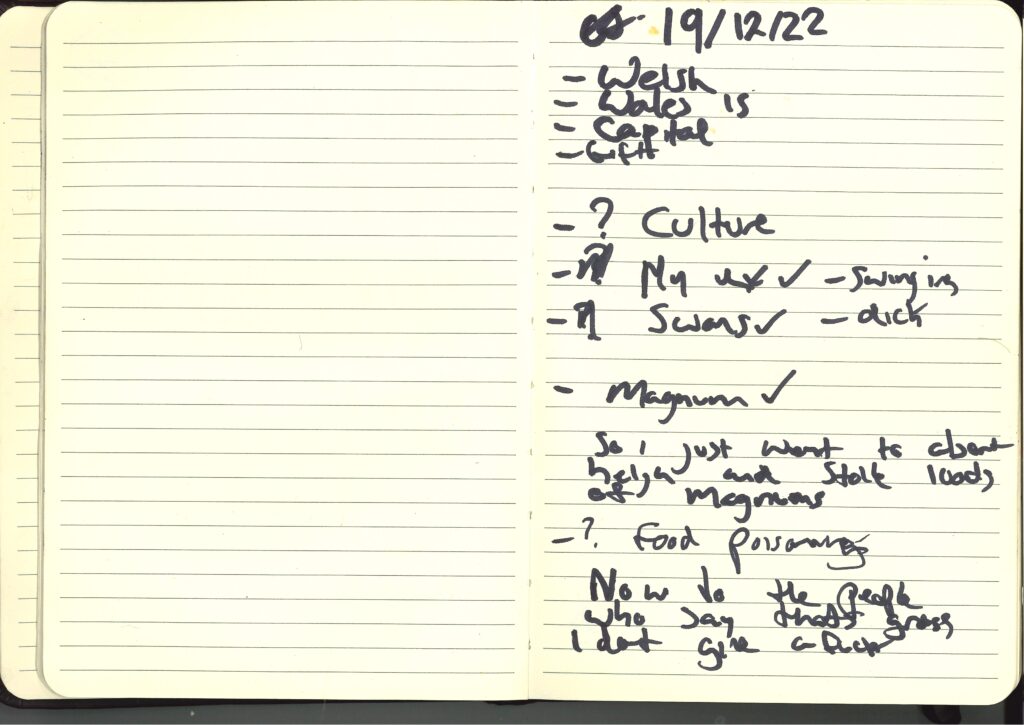 19/12/22
- Welsh
- Wales is
- Capital
- Gift
- ? Culture
- My ✓ - Swinging
- Swans ✓ - dick
- Magnum ✓
So I just went to
and stole loads
of Magnums
- ? Food poisoning
Now to the people
who say thats gross
I dont give a fuck